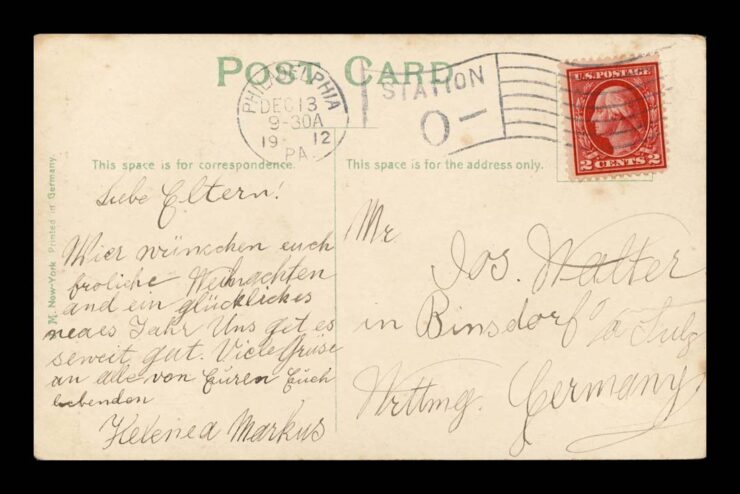 POST CARD
PHILADELPHIA
DEC 13
9-30A
1912
PA.
STATION
O-
U.S. POSTAGE
2 CENTS 2
This space is for correspondence.
This space is for the address only.
M. New-York Printed in Germany.
Liebe Eltern!
Wier wünschen euch
froliche Weihnachten
und ein glückliches
neues Jahr Uns get es
soweit gut. Viele Grüse
an alle von Euren Euch
liebenden
Helene & Markus
Mr.
Jos. Walter
in Binsdorf a Sulz
Wrttmg. Germany